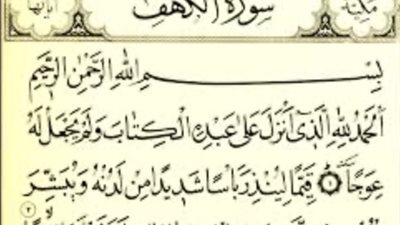 مكية سورة الكهف آياتها
بِسْمِ اللَّهِ الرَّحْمَٰنِ الرَّحِيمِ
الْحَمْدُ لِلَّهِ الَّذِي أَنْزَلَ عَلَىٰ عَبْدِهِ الْكِتَابَ وَلَمْ يَجْعَلْ لَهُ
عِوَجًا ۝١ قَيِّمًا لِيُنْذِرَ بَأْسًا شَدِيدًا مِنْ لَدُنْهُ وَيُبَشِّرَ
٢